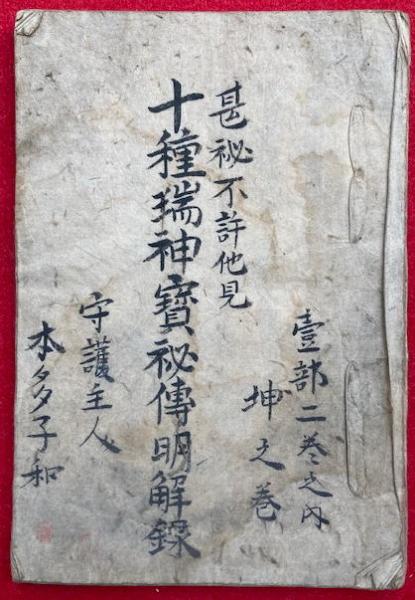 壹部二巻之内
坤之巻
甚祕不許他見
十種瑞神寶祕傳明解錄
守護主人
本多子和